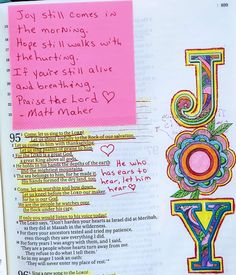 899
Joy still comes in
the morning.
Hope still walks with
the hurting.
If you're still alive
and breathing,
Praise the Lord ♡
- Matt Maher
JOY
95
Come, let us sing to the LORD!
Let us shout joyfully to the Rock of our salvation.
Let us come to him with thanksgiving.
For the LORD is a great God,
a great King above all gods.
He holds in his hands the depths of the earth
The sea belongs to him, for he made it.
His hands formed the dry land, too.
Come, let us worship and bow down.
for he is our God.
We are the people he watches over,
If only you would listen to his voice today!
The LORD says, "Don't harden your hearts as Israel did at Meribah,
as they did at Massah in the wilderness.
For there your ancestors tested and tried my patience,
even though they saw everything I did.
For forty years I was angry with them, and I said,
They refuse to do what I tell them.'
So in my anger I took an oath:
'They will never enter my place of rest.'"
♡ He who
has ears to
hear, let him
hear ♡
96
Sing a new song to the LORD!